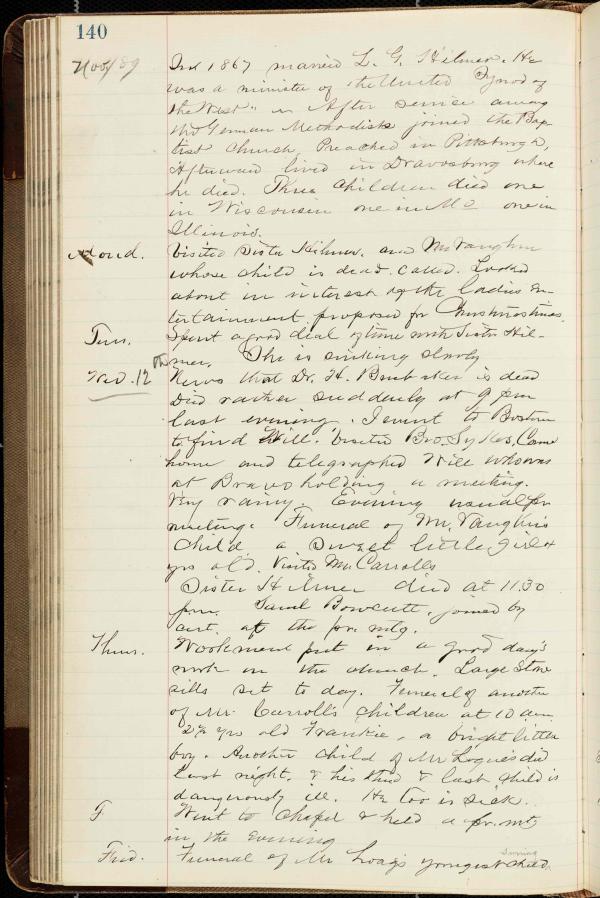 140
Nov/89 In 1867 married L. G. Hilmer. He
was a minister of the United Synod of
the West" After service among
the German Methodists joined the Bap-
tist Church, Preached in Pittsburgh,
Afterward lived in Dravosburg where
he died. Three children died one
in Wisconsin one in Mo one in
Illinois.
Mond. Visited Sister Hilmer, and Mr Vaughn
whose child is dead. Called. Looked
about in interest of the Ladies En-
tertainment proposed for Christmas times.
Tues. Spent a good deal of time with Sister Hil-
mer. She is sinking slowly
Wed. 12th News that Dr. H. Brubaker is dead
Died rather suddenly at 9 pm
last evening. I went to Boston
to find Will. Visited Bro. Sykes. Came
home and telegraphed Will who was
at Bravo holding a meeting.
Very rainy. Evening usual pr
meeting. Funeral of Mr. Vaughn's
child, a sweet little girl 4
yrs old. Visited Mr Carrolls
Sister Hilmer died at 11.30
p.m. Saml joined by
cert. at the pr. mtg.
Thurs. Workmen put in a good day's
work on the church. Large stone
sills set to day. Funeral of another
of Mr Carroll's children at 10 am
2½ yrs old Frankie, a bright little
boy. Another child of Mr Logue's died
last night, & his third & last child is
dangerously ill. He too is sick.
F Went to Chapel & held a pr. mtg
in the evening
Frid. Funeral of Mr youngest child